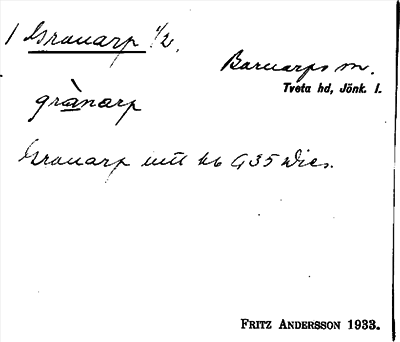 1 Granarp 1/2.
Barnarps sn.
Tveta hd, Jönk. l.
grànarp
Granarp utt hb G35 Dics.
FRITZ ANDERSSON 1933.